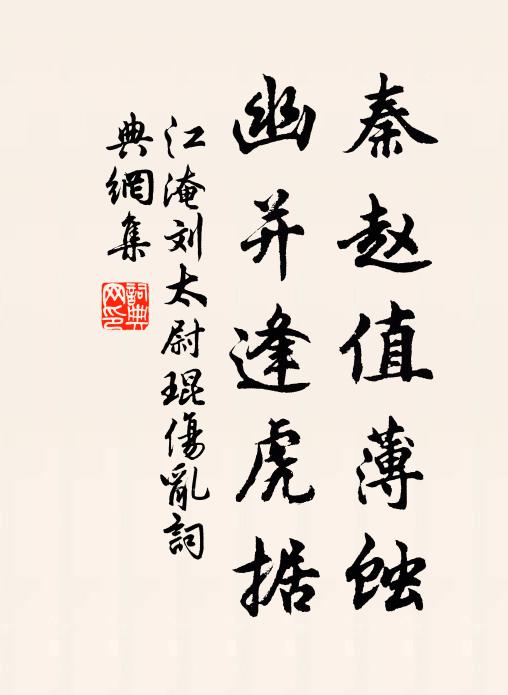 秦赵值薄蚀
幽并逢虎据
江淹刘太尉琨傷亂詞
典網集
詞典网印